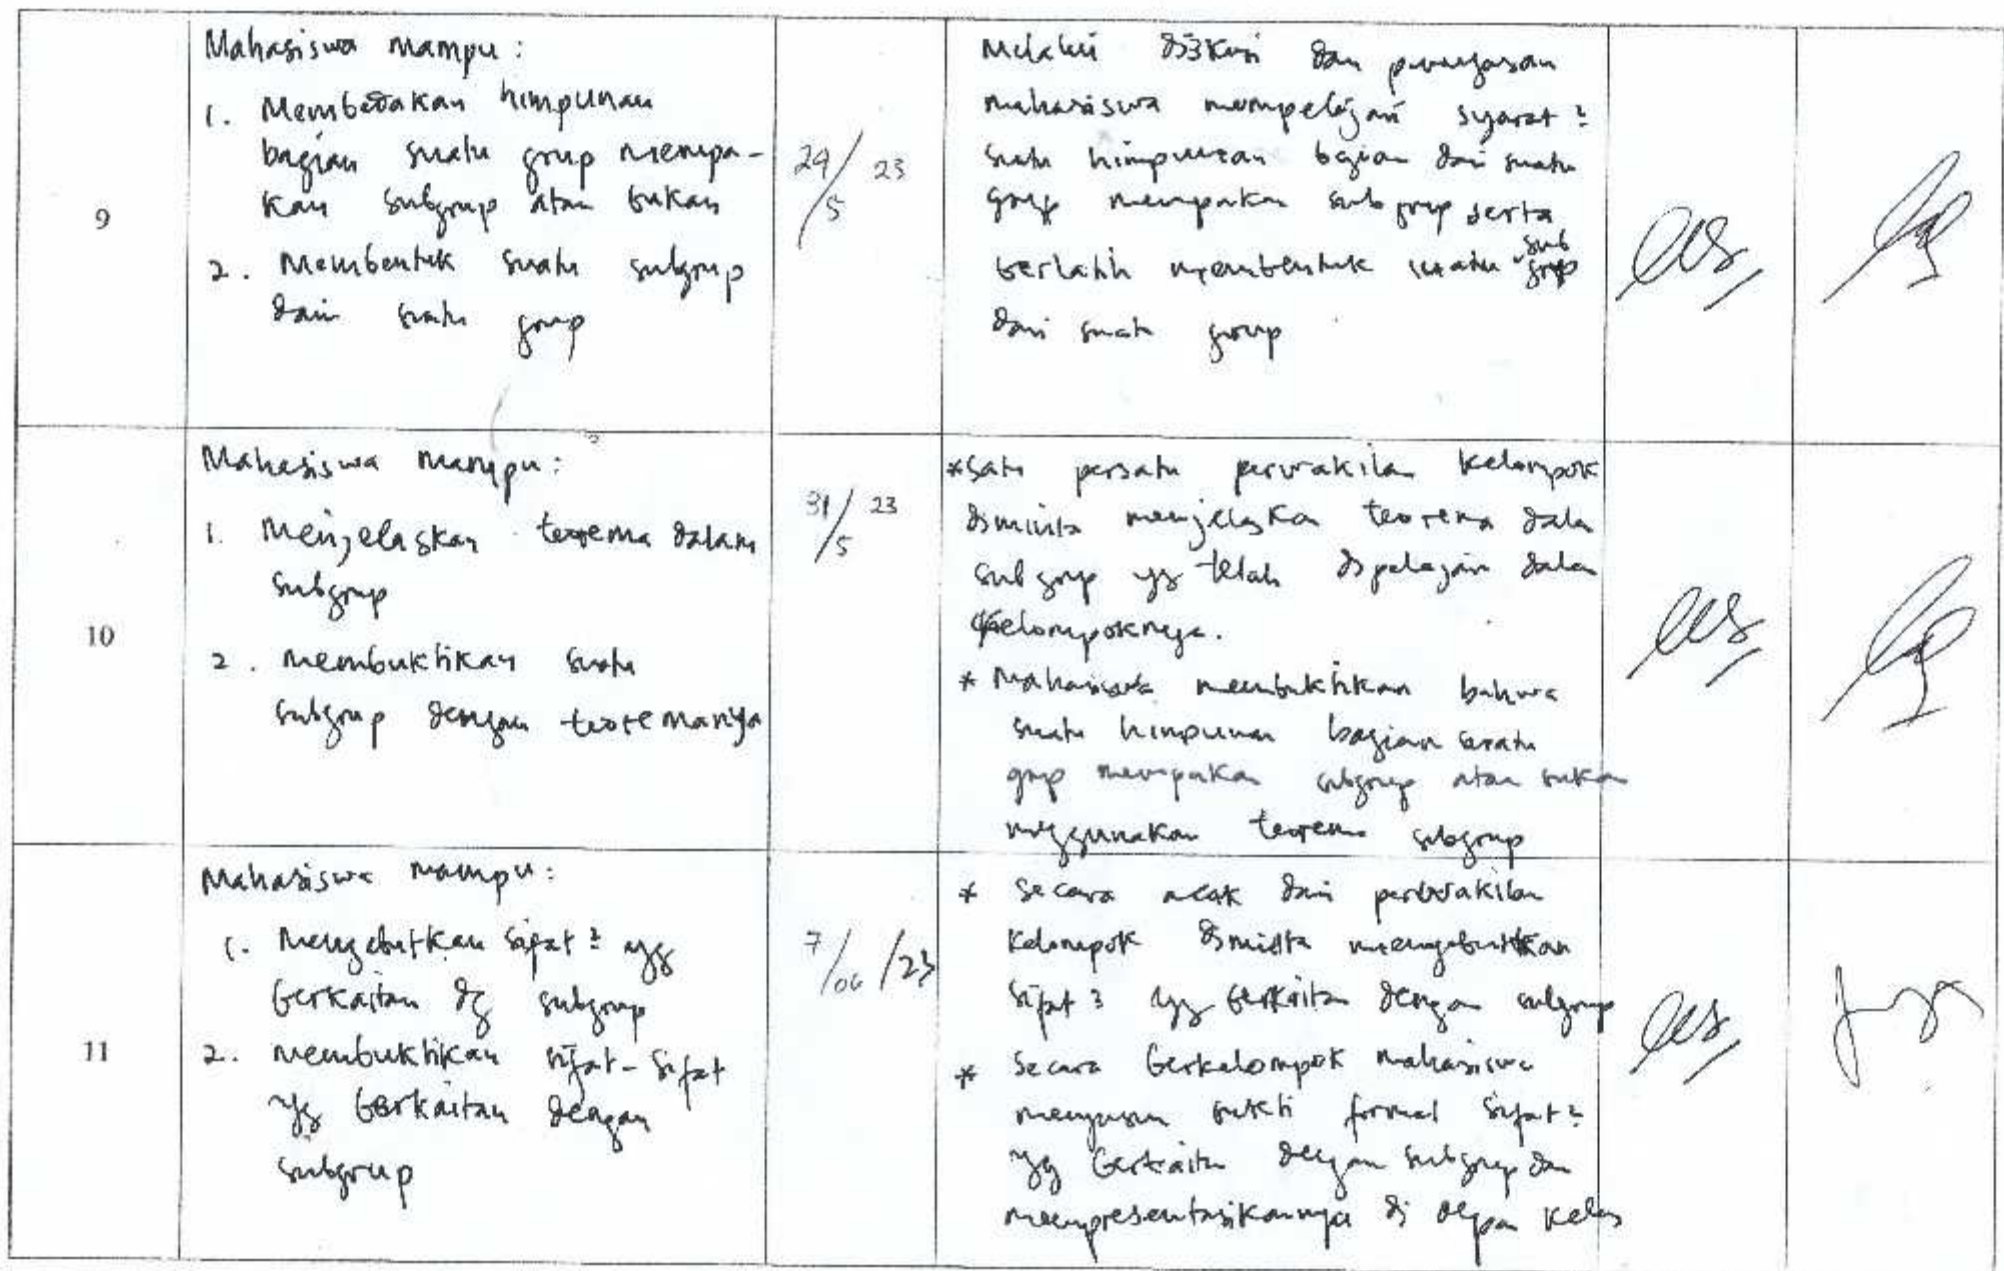 9
Mahasiswa mampu:
1. Membedakan himpunan
bagian suatu grup merupa-
kan subgrup atau bukan
2. Membentuk suatu subgrup
dari suatu grup
24/5 23
Melalui diskusi dan penugasan
mahasiswa mempelajari syarat²
suatu himpunan bagian dari suatu
grup merupakan subgrup serta
berlatih membentuk suatu sub
grup
dari suatu grup
10
Mahasiswa mampu:
1. Menjelaskan teorema dalam
subgrup
2. membuktikan suatu
subgrup dengan teoremanya
31/5 23
*Satu persatu perwakilan kelompok
diminta menjelaskan teorema dalam
subgrup yg telah dipelajari dalam
kelompoknya.
* Mahasiswa membuktikan bahwa
suatu himpunan bagian suatu
grup merupakan subgrup atau bukan
menggunakan teorema subgrup
11
Mahasiswa mampu:
1. Menyebutkan sifat² yg
berkaitan dg subgrup
2. membuktikan sifat-sifat
yg berkaitan dengan
subgrup
7/06/23
* Secara acak dari perwakilan
kelompok diminta menyebutkan
sifat² yg berkaitan dengan subgrup
* Secara berkelompok mahasiswa
menyusun bukti formal sifat²
yg berkaitan dengan subgrup dan
mempresentasikannya di depan kelas